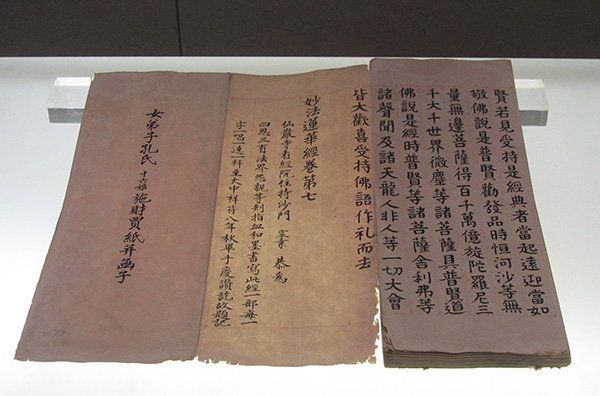 賢若見受持是經典者當起遠迎當如
敬佛說是普賢勸發品時恒河沙等無
量無邊菩薩得百千萬億旋陀羅尼三
千大千世界微塵等諸菩薩具普賢道
佛說是經時普賢等諸菩薩舍利弗等
諸聲聞及諸天龍人非人等一切大會
皆大歡喜受持佛語作礼而去
妙法蓮華經卷第七
仙巖寺看經院住持沙門 恭為
四恩三有法界怨親等刺指血和墨書寫此經一部每一
字一唱一遶一拜至大中祥符八年秋畢手慶讚訖故題記
女弟子孔氏十六娘施財買紙并函子